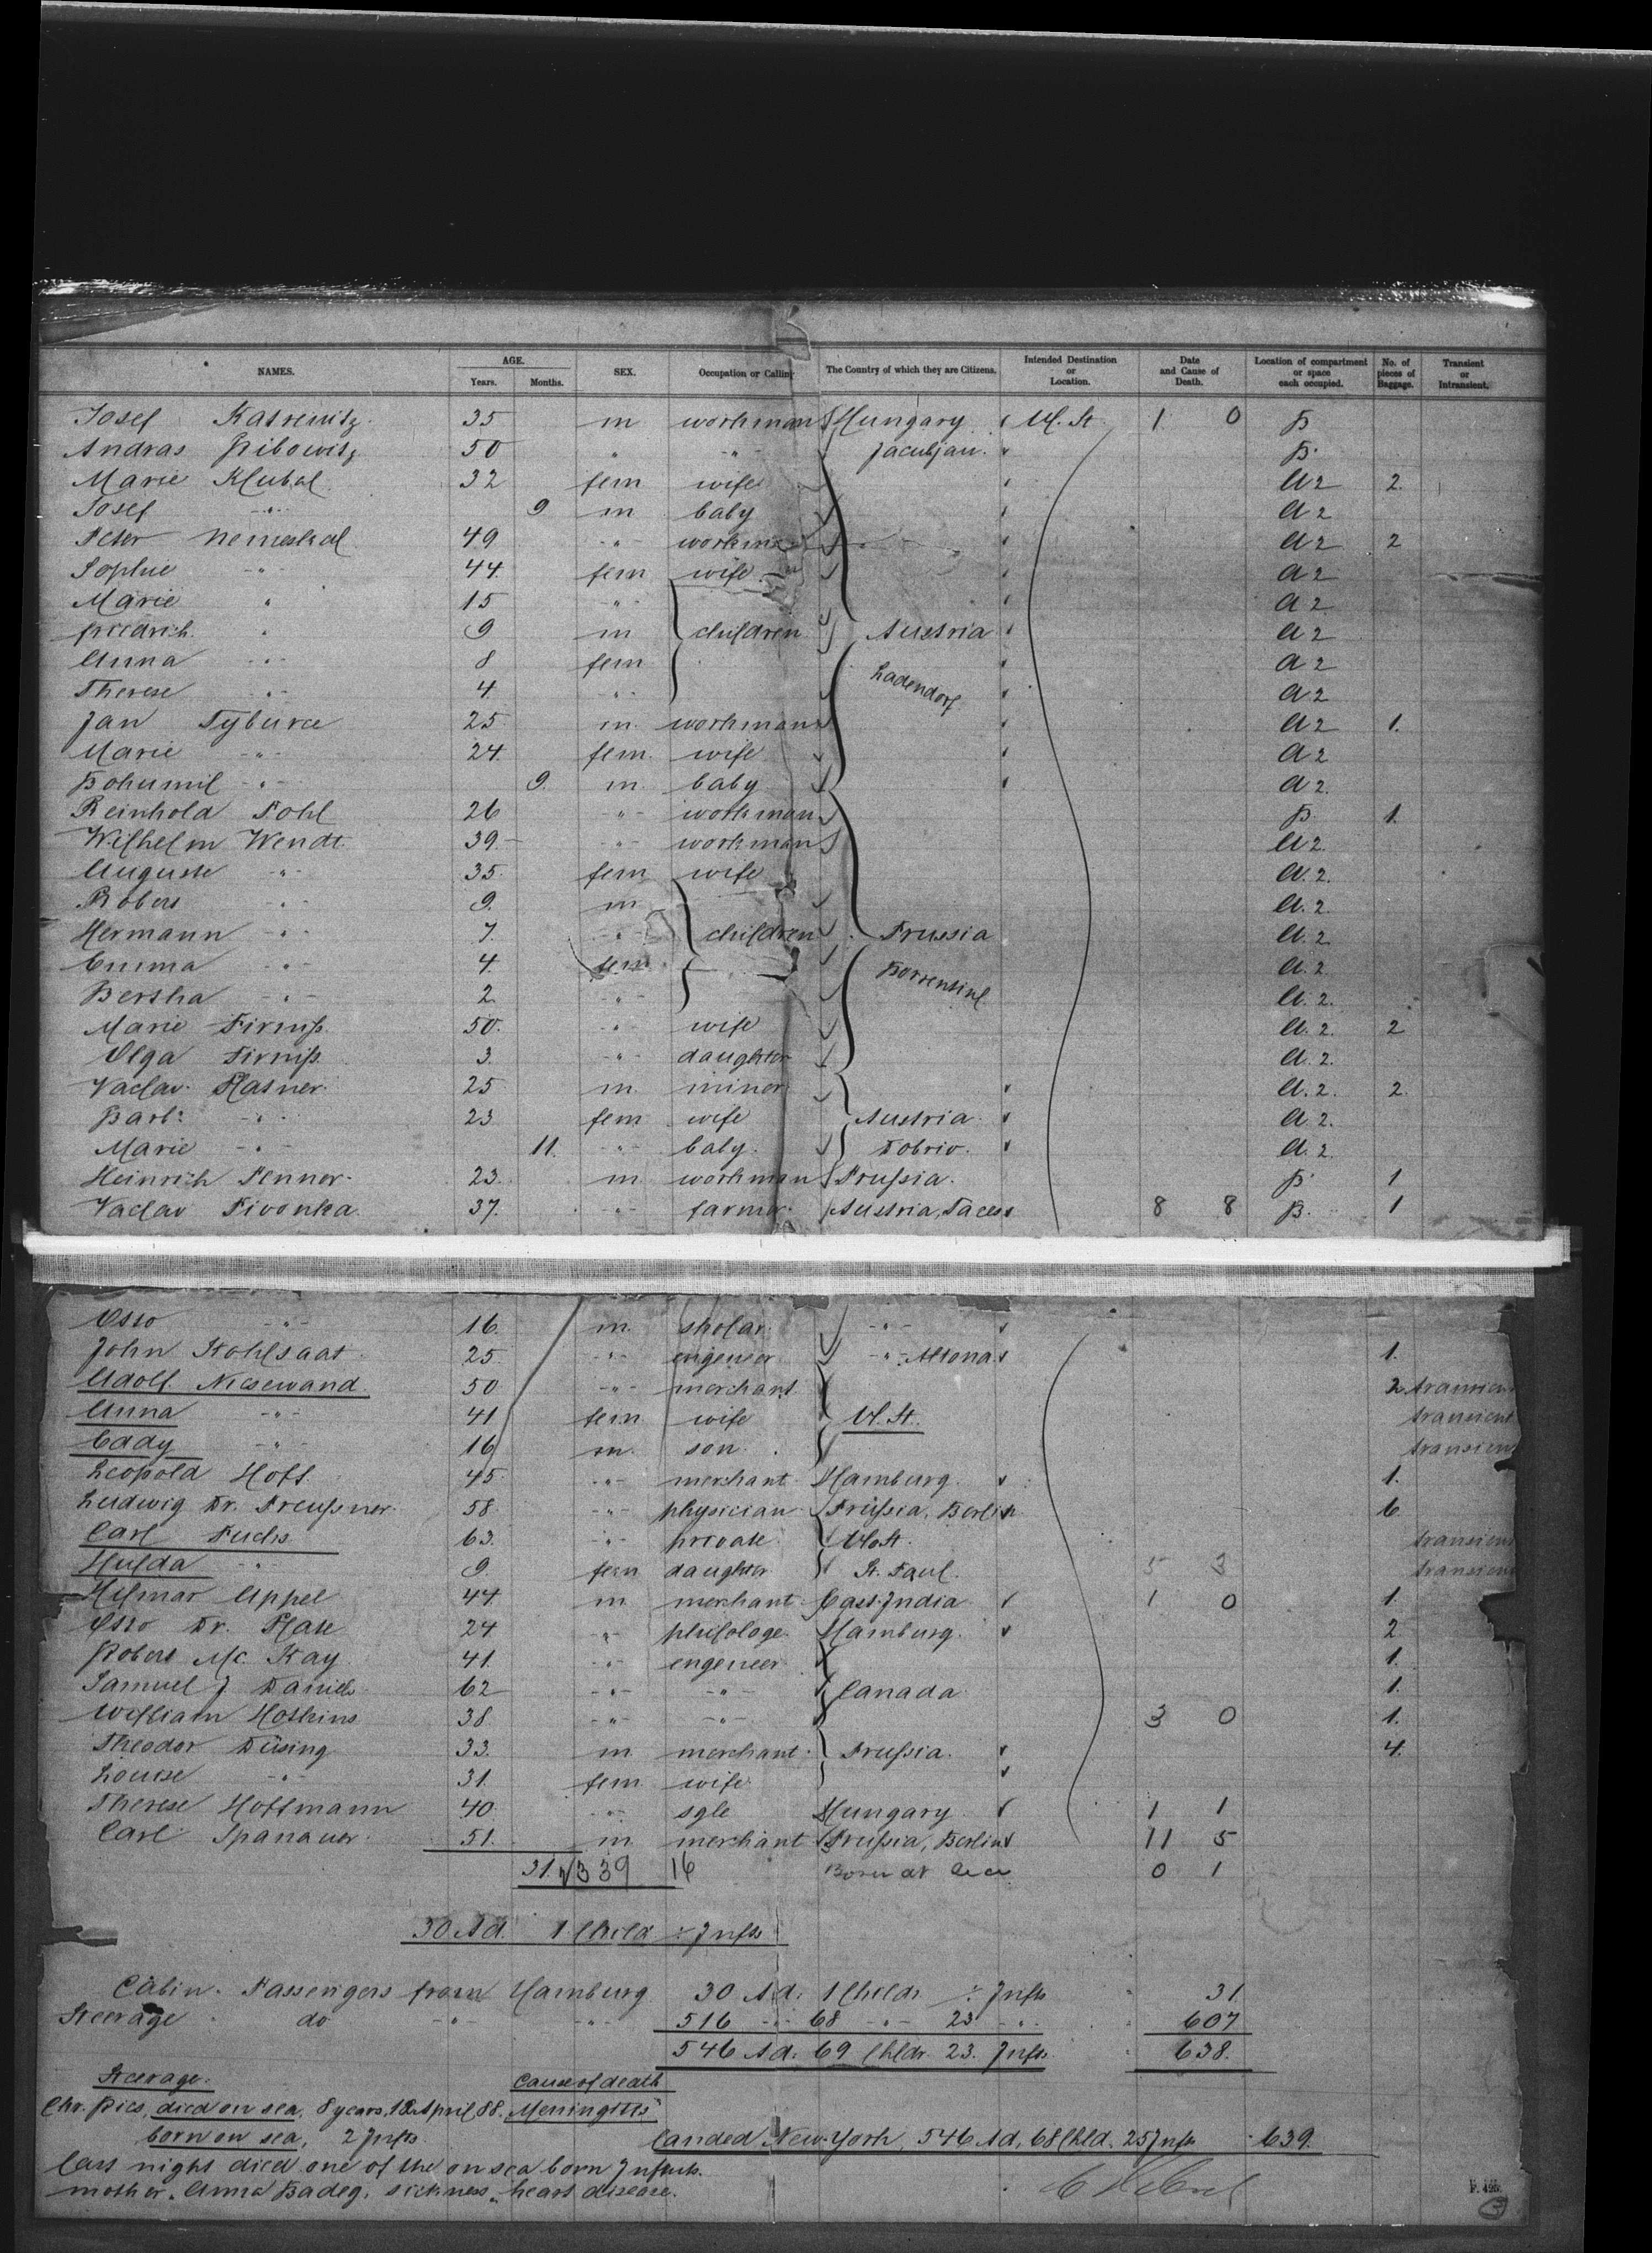 NAMES. AGE. Years. Months. SEX. Occupation or Calling The Country of which they are Citizens. Intended Destination or Location. Date and Cause of Death. Location of compartment or space each occupied. No. of pieces of Baggage. Transient or Intransient.
Josef 35 m workman Hungary U. St. 1 0 B
Andras 50 " " B.
Marie Klubal 32 fem wife A 2 2.
Josef " 9 m baby A 2
Peter 49 " A 2 2
Sophie " 44. fem wife A 2
Marie " 15 " A 2
Friedrich " 9 m children Austria A 2
Anna " 8 fem Ladendorf A 2
Therese " 4. " A 2
Jan Tyburce 25 m. workman A 2 1.
Marie " 24. fem. wife A 2
Bohumil " 9. m. baby A 2.
Reinhold Pohl 26 " workman B. 1.
Wilhelm Wendt 39. " workman A 2.
Auguste " 35. fem wife A. 2.
Robert " 9. m A. 2.
Hermann " 7. " children Prussia A. 2
Emma " 4. fem A. 2
Bertha " 2. " A. 2.
Marie Firniß. 50. " wife A. 2. 2
Olga Firniß. 3. " daughter A. 2.
Vaclav Plasner. 25 m. miner A. 2. 2.
Barb: " 23 fem wife Austria A. 2.
Marie " 11. " baby. Dobriv. A. 2.
Heinrich Penner. 23. m workman Prussia. B 1
Vaclav Pivonka. 37. " farmer. Austria, 8 8 B. 1
Otto " 16. m. sholar. "
John Kohlsaat. 25. " engeneer " Altona 1.
Adolf Niesewand. 50 " merchant 2 transient
Anna " 41 fem. wife U. St. transient
Eddy " 16 m. son. transient
Leopold Hoff. 45. " merchant Hamburg. 1.
Ludwig Dr. Preußner. 58. " physician Prussia, Berlin 6.
Carl Fuchs 63. " private U. St. transient
Hulda " 9. fem daughter St. Paul. 5 3 transient
Hilmar Appel 44 m merchant East-India 1 0 1.
Otto Dr. Plate 24 " philologe. Hamburg. 2.
Robert Mc. Kay 41. " engeneer 1.
Samuel J. Daniels 62 " " Canada 1.
William Hoskins 38. " " 3 0 1.
Theodor Düsing 33. m merchant Prussia. 4.
Louise " 31. fem. wife
Therese Hoffmann 40. " sgle Hungary 1 1
Carl Spanauer. 51. m merchant Prussia, Berlin 11 5
31. 339 16 Born at Sea 0 1
30 Ad. 1 Child ÷ Infts
Cabin. Passengers from Hamburg 30 Ad. 1 Childr. ÷ Infts 31
Steerage do " " 516 " 68 " 23 " 607
546 Ad. 69 Chldr. 23. Infts. 638.
Steerage. Cause of death
Chr. Pics, died on sea, 8 years, 18 April 88. Meningitis
born on sea, 2 Infts. Landed New-York, 546 Ad, 68 Chld. 25 Infts 639.
Last night died one of the on sea born Infants.
mother, Anna Badeg, sickness, heart disease.